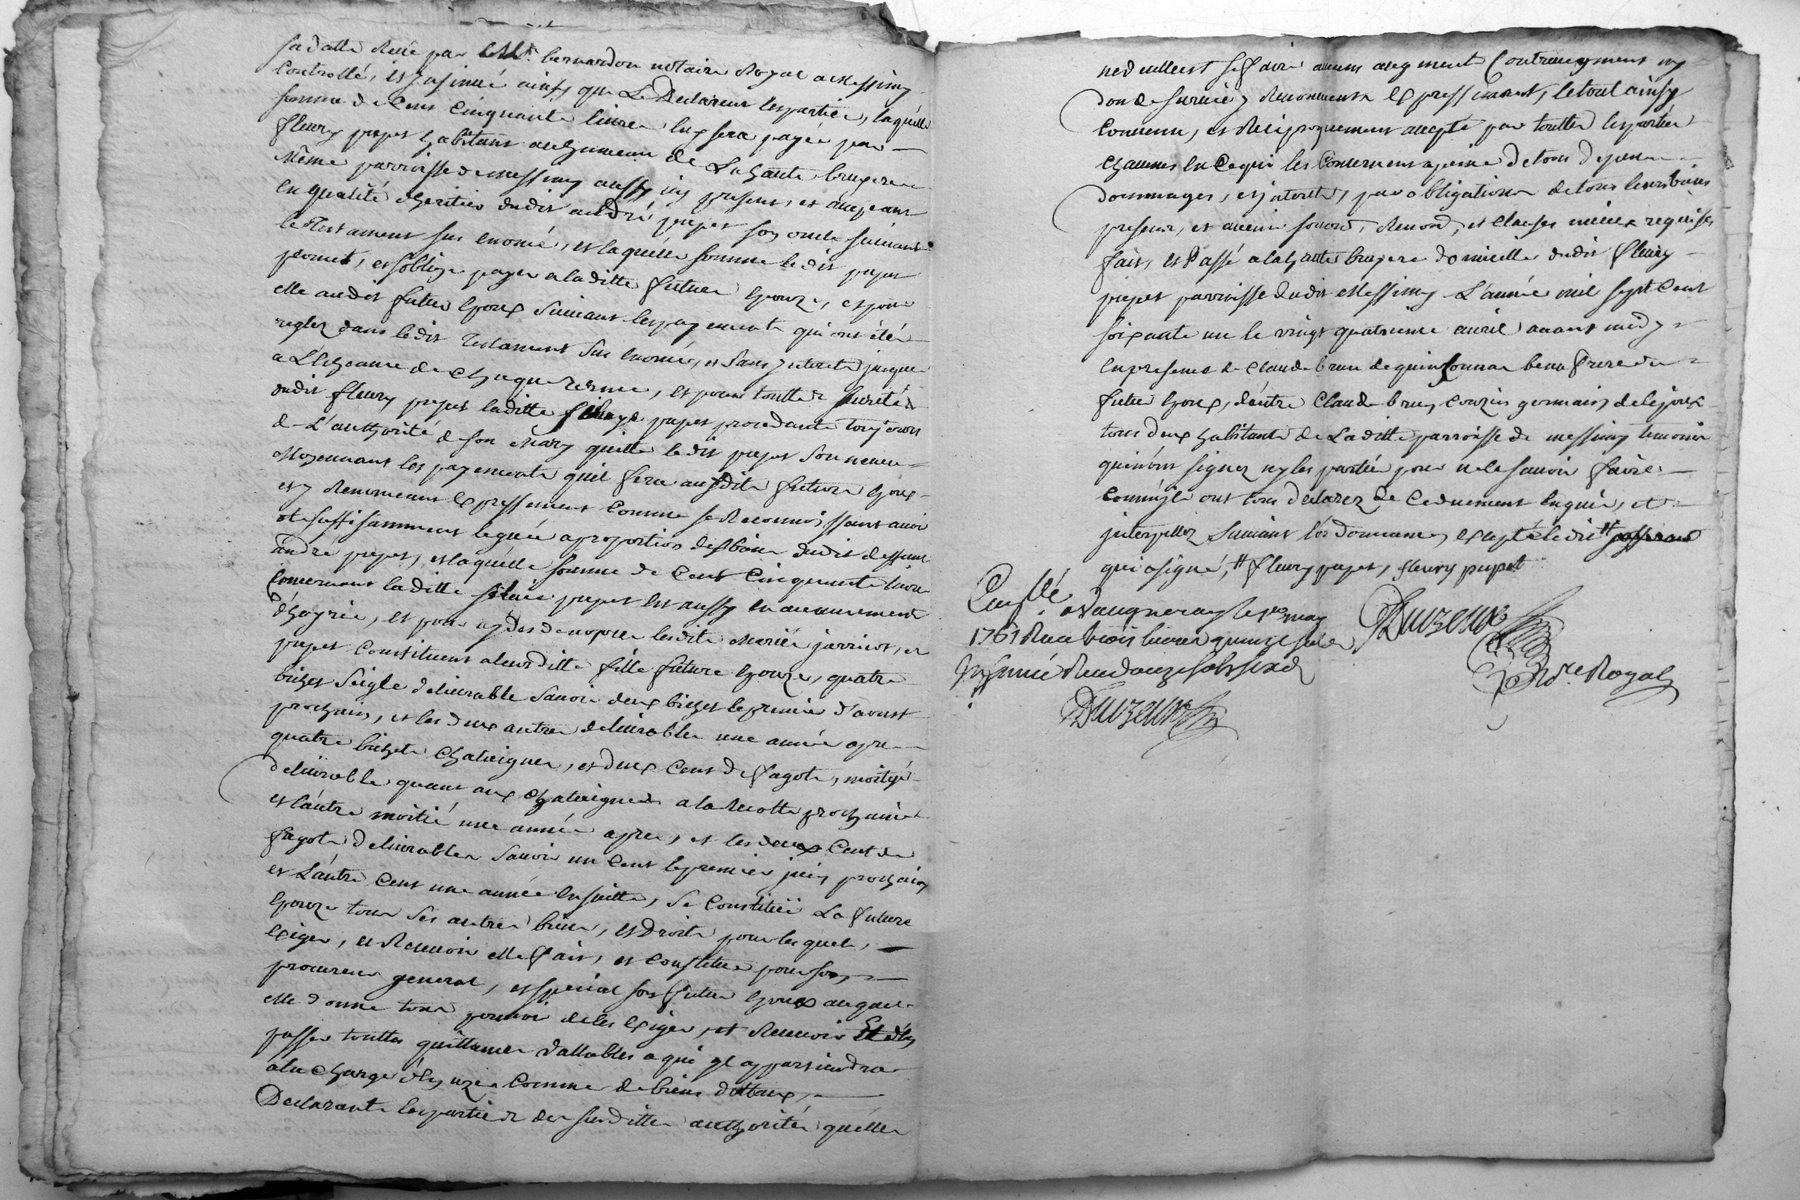 sa datte Recu par Me. bernardon notaire Royal a Messimy
Controllé, et insinué ainsy que Le Declarent les parties, laquelle
somme de Cent Cinquante livres luy sera payée par
fleury pupet habitant au hameau de La haute bruyere
même parroisse de messimy aussy icy present, et acceptant
en qualité d'heritier dudit andré pupet son oncle suivant
le Testament sus enoncé, et laquelle somme ledit pupet
promet, et s'oblige payer a laditte future Epouze, et pour
elle audit futur Epoux suivant les payements qui ont été
reglez dans ledit Testament sus enoncé, et sans interets jusque
a L'Echeance de Chaque Terme, et pour toutte sureté
dudit fleury pupet laditte pupet procedante toujours
de L'authorité de son Mary quitte ledit pupet son neveu
Moyennant les payements quil fera ausdits futurs Epoux
et y Renonceant Expressement comme se Reconnoissant avoir
eté suffisamment leguée a proportion des biens dudit deffunt
andré pupet, et laquelle somme de Cent Cinquante livres
Concernant laditte pupet est aussy en avancement
d'hoyrie, et pour les dits Mariés jarricot, et
pupet Constituent a leurditte fille future Epouze, quatre
bichets Seigle delivrable Savoir deux bichets le premier d'aoust
prochain, et les deux autres delivrables une année apres
quatre bichets Chataignes, et deux Cent de fagots, moitié
delivrable quant aux Chataignes a la Recolte prochaine
et l'autre moitié une année apres, et les deux Cent de
fagots delivrables Savoir un Cent le premier juin prochain
et L'autre Cent une année ensuitte, Se Constitüe La future
Epouze tous ses autres biens, et Droits pour lesquels
Exiger, et Recevoir elle fait, et Constitue pour son
procureur general, et special son futur Epoux auquel
elle donne tout pouvoir de les Exiger, et Recevoir Et d'en
passer touttes quittances vallables a qui il appartiendra
a la Charge d'En uzer Comme de biens dottaux,
Declarants les parties de susditte authorité quelles
ne veullent se faire aucuns augment Contreaugment ny
don de survie y Renonceants Expressement, le tout ainsy
Convenu, et Reciproquement accepté par touttes les parties
chacunes en Ce qui les Concernent a peine de tous depens
dommages, et interets, par obligation de tous leurs biens
presens, et avenir soumis, Renond, et Clauses mieux requises
fait, et Passé a la haute bruyere domicille dudit fleury
pupet parroisse dudit Messimy L'année mil sept Cent
soixante un le vingt quatrieme avril avant midy
en presence de Claude brun de quinsonnas beau frere du
futur Epoux, d'autre Claude brun cousin germain dele joux
tous deux habitants de Laditte parroisse de messimy temoins
qui n'ont signez ny les parties pour ne le savoir faire
comm'ils ont tous declarez de Ce duement Enquis, et
interpellez Suivant l'ordonnance, excepté ledit
qui a signé, # fleury pupet, fleury pupet
Con̄llé a Vaugneray le per may
1761 Recu trois livres quinze sols
Insinué Recu douze sols six d
Duvzeux
Duvzeux
Nore Royal